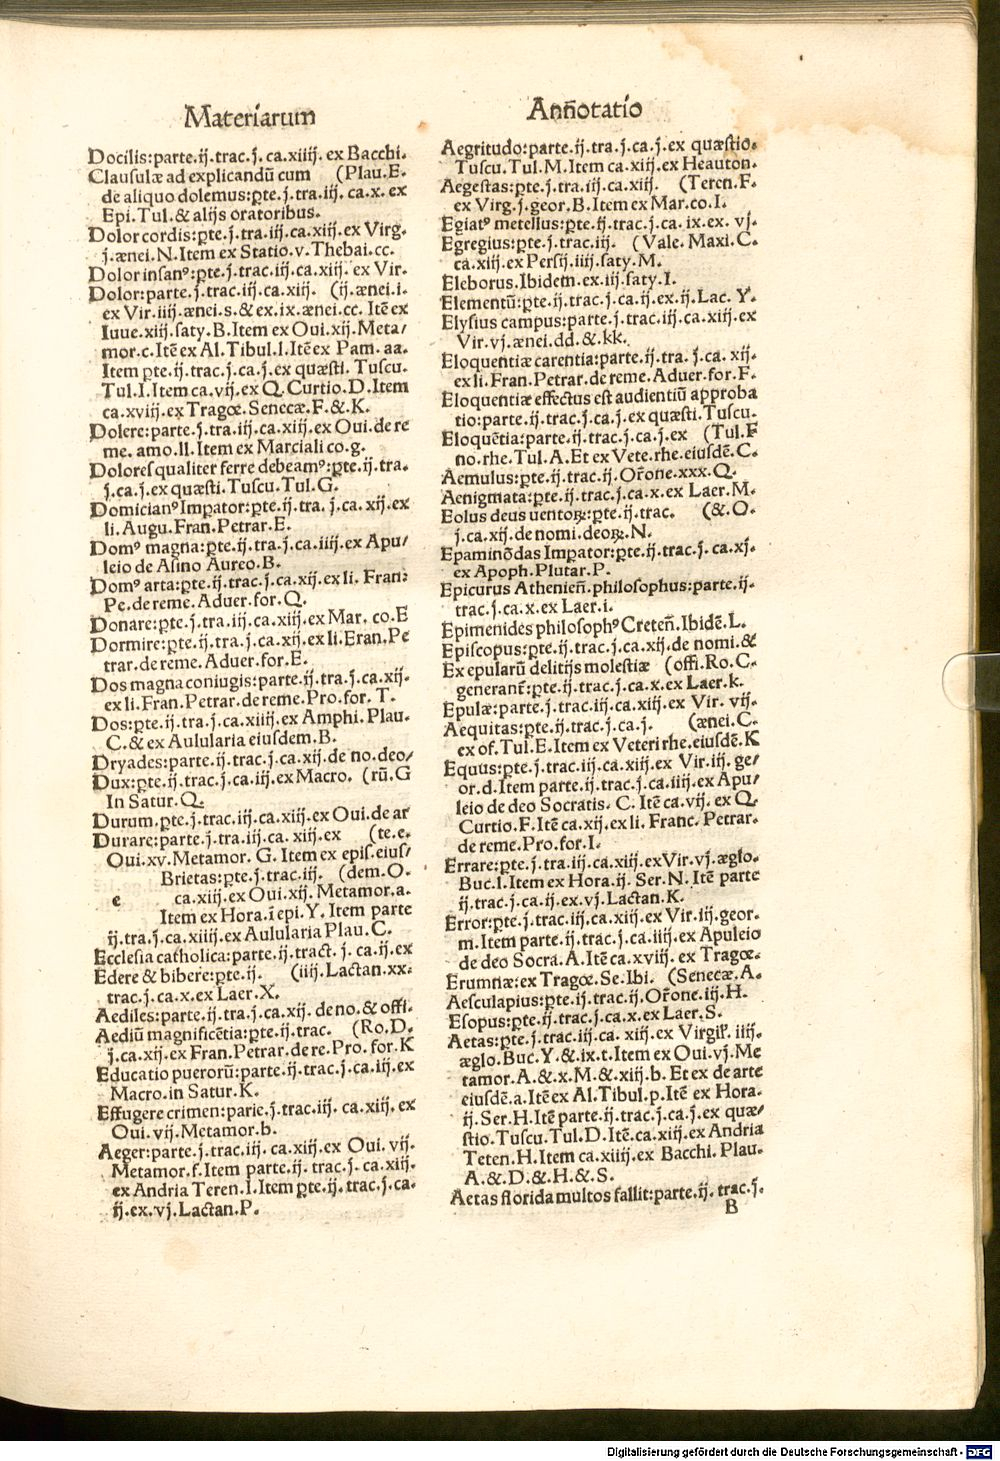 Materiarum
Docilis:parte.ij.trac.j.ca.xiiij.ex Bacchi.
Clausulæ ad explicandū cum (Plau.E.
de aliquo dolemus:pte.j.tra.iij.ca.x.ex
Epi.Tul.& alijs oratoribus.
Dolor cordis:pte.j.tra.iij.ca.xiij.ex Virg.
j.ænei.N.Item ex Statio.v.Thebai.cc.
Dolor insanꝰ:pte.j.trac.iij.ca.xiij.ex Vir.
Dolor:parte.j.trac.iij.ca.xiij. (ij.ænei.i.
ex Vir.iiij.ænei.s.& ex.ix.ænei.cc. Itē ex
Iuue.xiij.saty.B.Item ex Oui.xij.Meta/
mor.c.Itē ex Al.Tibul.l.Itē ex Pam.aa.
Item pte.ij.trac.j.ca.j.ex quæsti. Tuscu.
Tul.I.Item ca.vij.ex Q.Curtio.D.Item
ca.xviij.ex Tragœ.Senecæ.F.& K.
Dolere:parte.j.tra.iij.ca.xiij.ex Oui.de re
me.amo.ll.Item ex Marciali co.g.
Dolores qualiter ferre debeamꝰ:pte.ij.tra.
j.ca.j.ex quæsti.Tuscu.Tul.G.
Domicianꝰ Impator:pte.ij.tra.j.ca.xij.ex
li.Augu.Fran.Petrar.E.
Domꝰ magna:pte.ij.tra.j.ca.iiij.ex Apu/
leio de Asino Aureo.B.
Domꝰ arta:pte.ij.trac.j.ca.xij.ex li. Fran:
Pe.de reme.Aduer.for.Q.
Donare:pte.j.tra.iij.ca.xiij.ex Mar. co.E
Dormire:pte.ij.tra.j.ca.xij.ex li.Eran.Pe
trar.de reme.Aduer.for.E.
Dos magna coniugis:parte.ij.tra.j.ca.xij.
ex li.Fran.Petrar.de reme.Pro.for. T.
Dos:pte.ij.tra.j.ca.xiiij.ex Amphi.Plau.
C.& ex Aulularia eiusdem.B.
Dryades:parte.ij.trac.j.ca.xij.de no.deo/
Dux:pte.ij.trac.j.ca.iij.ex Macro. (rū.G
In Satur.Q.
Durum.pte.j.trac.iij.ca.xiij.ex Oui.de ar
Durare:parte.j.tra.iij.ca.xiij.ex (te.e.
Oui.xv.Metamor.G.Item ex epis.eius/
Brietas:pte.j.trac.iij. (dem.O.
e ca.xiij.ex Oui.xij.Metamor.a.
Item ex Hora.i epi.Y.Item parte
ij.tra.j.ca.xiiij.ex Aulularia Plau.C.
Ecclesia catholica:parte.ij.tract.j.ca.ij.ex
Edere & bibere:pte.ij. (iiij.Lactan.xx.
trac.j.ca.x.ex Laer.X.
Aediles:parte.ij.tra.j.ca.xij.de no.& offi.
Aediū magnificētia:pte.ij.trac. (Ro.D.
j.ca.xij.ex Fran.Petrar.de re.Pro.for.K
Educatio puerorū:parte.ij.trac.j.ca.iij.ex
Macro.in Satur.K.
Effugere crimen:parte.j.trac.iij.ca.xiij.ex
Oui.vij.Metamor.b.
Aeger:parte.j.trac.iij.ca.xiij.ex Oui. vij.
Metamor.f.Item parte.ij.trac.j.ca.xiij.
ex Andria Teren.I.Item pte.ij.trac.j.ca.
ij.ex.vj.Lactan.P.
Anñotatio
Aegritudo:parte.ij.tra.j.ca.j.ex quæstio.
Tuscu.Tul.M.Item ca.xiij.ex Heauton.
Aegestas:pte.j.tra.iij.ca.xiij. (Teren.F.
ex Virg.j.geor.B.Item ex Mar.co.I.
Egiatꝰ metellus:pte.ij.trac.j.ca.ix.ex. vj.
Egregius:pte.j.trac.iij. (Vale. Maxi.C.
ca.xiij.ex Persij.iiij.saty.M.
Eleborus.Ibidem.ex.iij.saty.I.
Elementū:pte.ij.trac.j.ca.ij.ex.ij.Lac. Y.
Elysius campus:parte.j.trac.iij.ca.xiij.ex
Vir.vj.ænei.dd.&.kk.
Eloquentiæ carentia:parte.ij.tra.j.ca.xij.
ex li.Fran.Petrar.de reme.Aduer.for.F.
Eloquentiæ effectus est audientiū approba
tio:parte.ij.trac.j.ca.j.ex quæsti.Tuscu.
Eloquētia:parte.ij.trac.j.ca.j.ex (Tul.F
no.rhe.Tul.A.Et ex Vete.rhe.eiusdē.C.
Aemulus:pte.ij.trac.ij.Orõne.xxx.Q.
Aenigmata:pte.ij.trac.j.ca.x.ex Laer.M.
Eolus deus uentoꝝ:pte.ij.trac. (&.O.
j.ca.xij.de nomi.deoꝝ.N.
Epaminōdas Impator:pte.ij.trac.j.ca.xj.
ex Apoph.Plutar.P.
Epicurus Athenieñ.philosophus:parte.ij.
trac.j.ca.x.ex Laer.i.
Epimenides philosophꝰ Creteñ.Ibidē.L.
Episcopus:pte.ij.trac.j.ca.xij.de nomi.&
Ex epularū delitijs molestiæ (offi.Ro.C.
generant̄:pte.ij.trac.j.ca.x.ex Laer.k.
Epulæ:parte.j.trac.iij.ca.xiij.ex Vir. vij.
Aequitas:pte.ij.trac.j.ca.j. (ænei.C.
ex of.Tul.E.Item ex Veteri rhe.eiusdē.K
Equus:pte.j.trac.iij.ca.xiij.ex Vir.iij.ge/
or.d.Item parte.ij.trac.j.ca.iiij.ex Apu/
leio de deo Socratis. C.Itē ca.vij.ex Q.
Curtio.F.Itē ca.xij.ex li.Franc.Petrar.
de reme.Pro.for.I.
Errare:pte.j.tra.iij.ca.xiij.ex Vir.vj.æglo.
Buc.l.Item ex Hora.ij. Ser.N.Itē parte
ij.trac.j.ca.ij.ex.vj.Lactan.K.
Error:pte.j.trac.iij.ca.xiij.ex Vir.iij.geor.
m.Item parte.ij.trac.j.ca.iiij.ex Apuleio
de deo Socra.A.Itē ca.xviij.ex Tragœ.
Erumnæ:ex Tragœ.Se.Ibi. (Senecæ.A.
Aesculapius:pte.ij.trac.ij.Orõne.iij.H.
Esopus:pte.ij.trac.j.ca.x.ex Laer.S.
Aetas:pte.j.trac.iij.ca. xiij.ex Virgil̃. iiij.
æglo.Buc.Y.&.ix.t.Item ex Oui.vj.Me
tamor.A.&.x.M.&.xiij.b. Et ex de arte
eiusdē.a.Itē ex Al.Tibul.p.Itē ex Hora.
ij.Ser.H.Itē parte.ij.trac.j.ca.j.ex quæ/
stio.Tuscu.Tul.D.Itē.ca.xiij.ex Andria
Teten.H.Item ca.xiiij.ex Bacchi. Plau.
A.&.D.&.H.&.S.
Aetas florida multos fallit:parte.ij.trac.j.
B
Digitalisierung gefördert durch die Deutsche Forschungsgemeinschaft - DFG